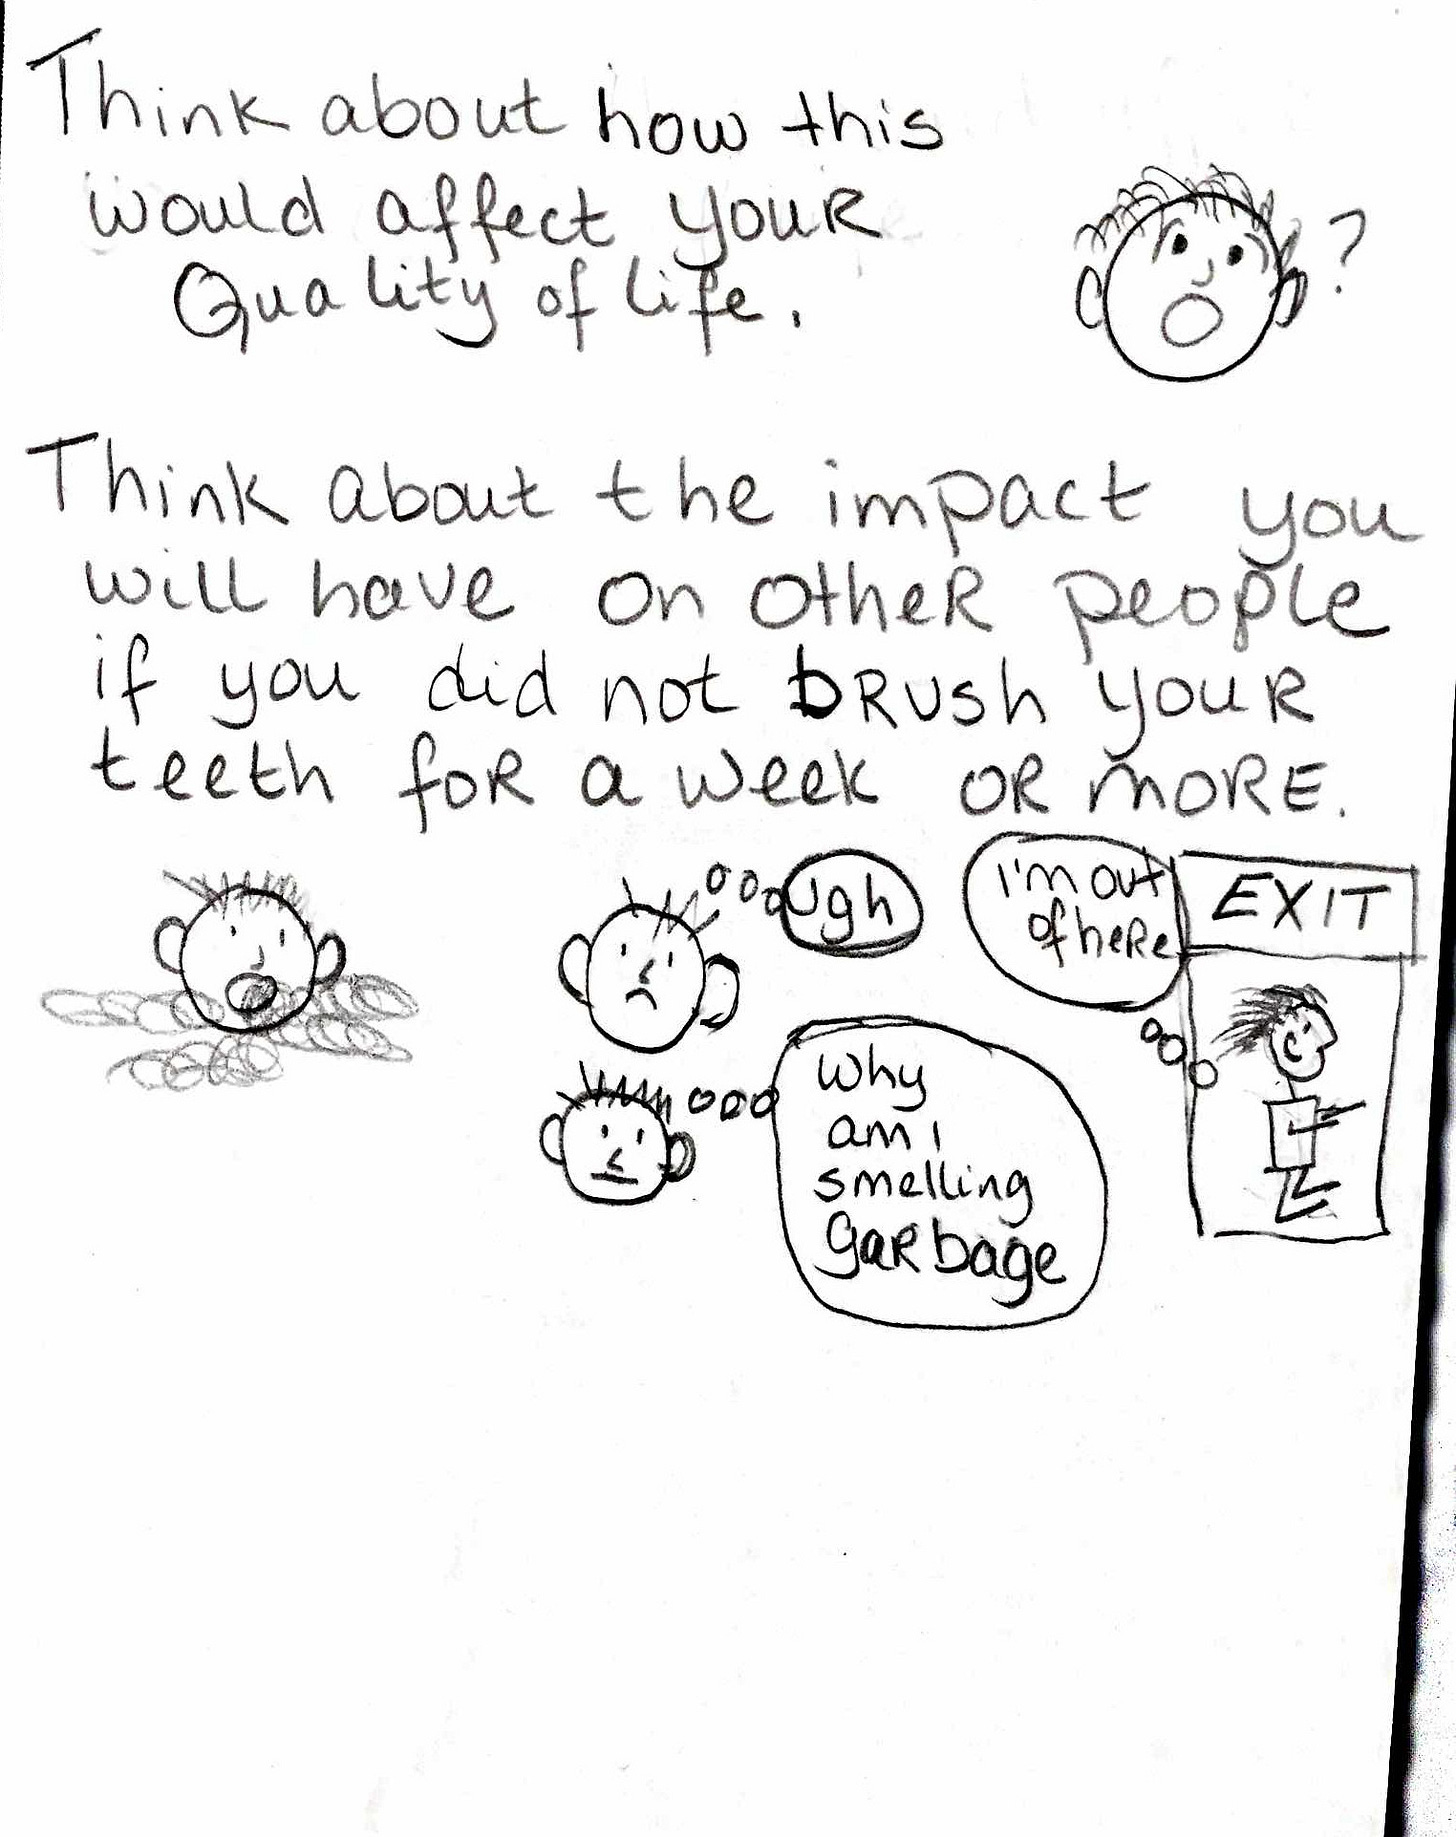 Think about how this
would affect your
Quality of life.
?
Think about the impact you
will have on other people
if you did not brush your
teeth for a week or more.
ugh
I'm out
of here
EXIT
Why
am i
smelling
garbage